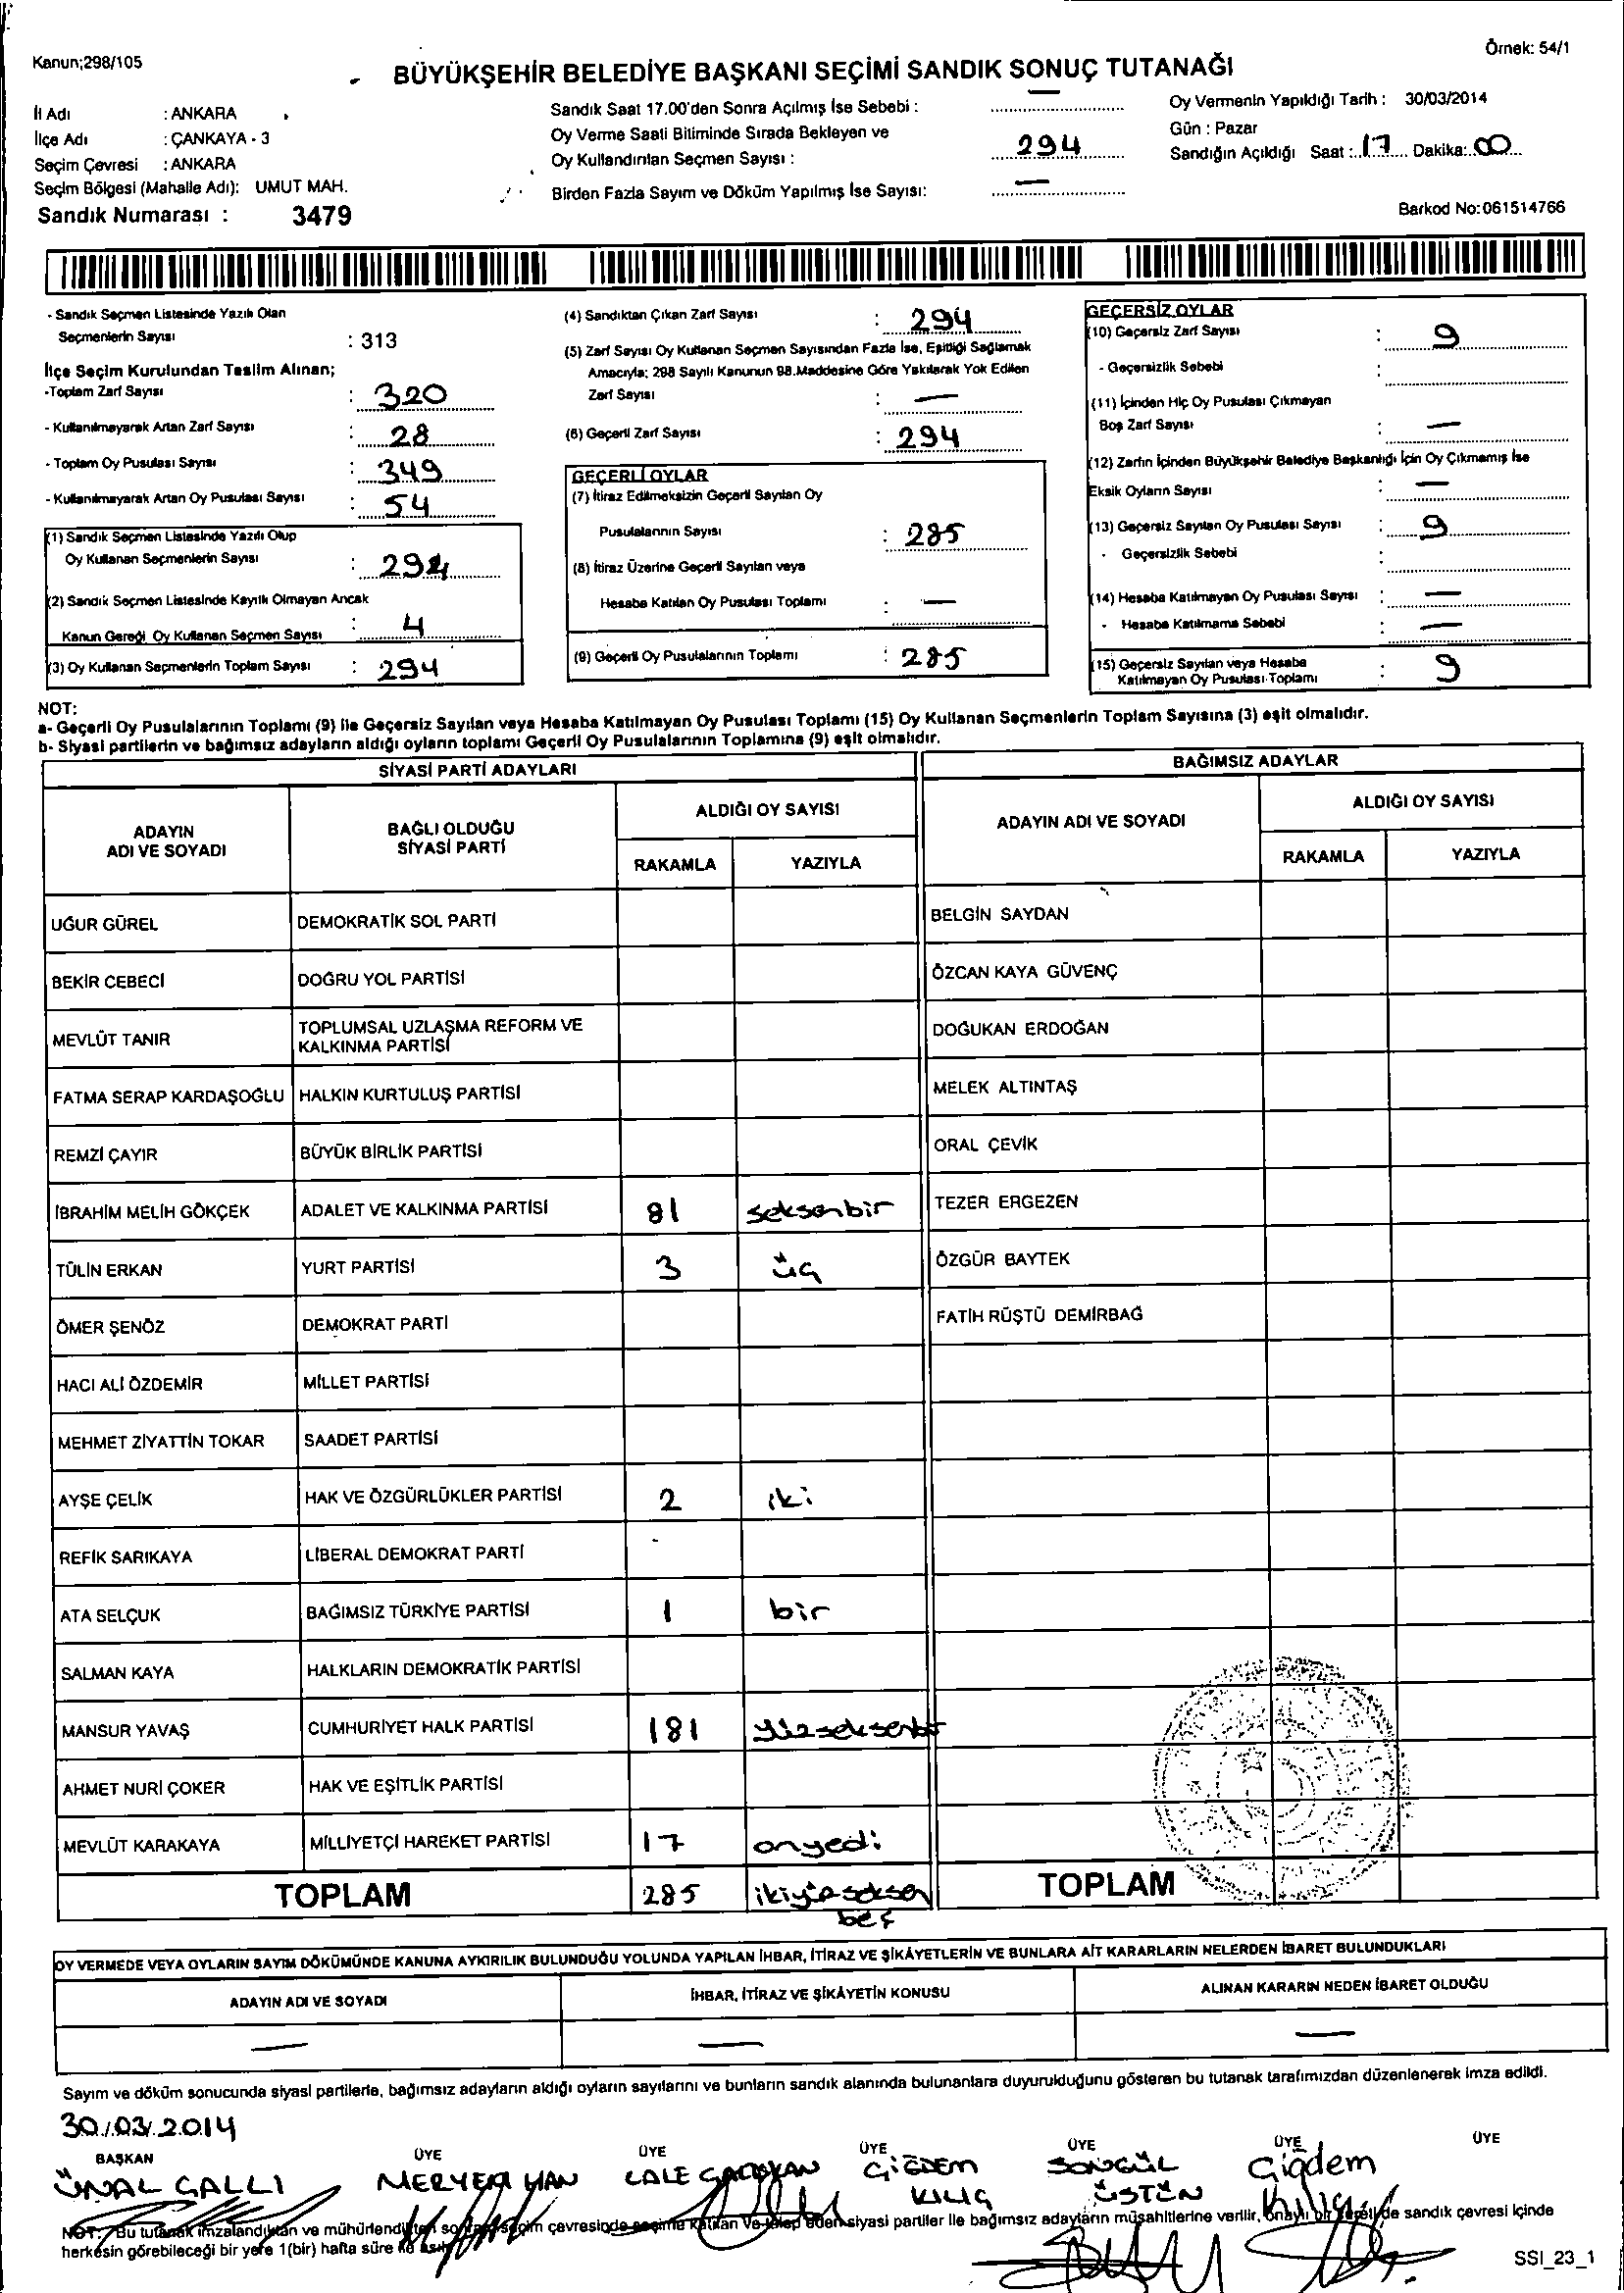 Kanun;298/105
Örnek: 54/1
BÜYÜKŞEHİR BELEDİYE BAŞKANI SEÇİMİ SANDIK SONUÇ TUTANAĞI
İl Adı : ANKARA
İlçe Adı : ÇANKAYA - 3
Seçim Çevresi : ANKARA
Seçim Bölgesi (Mahalle Adı): UMUT MAH.
Sandık Numarası : 3479
Sandık Saat 17.00'den Sonra Açılmış İse Sebebi : —
Oy Verme Saati Bitiminde Sırada Bekleyen ve
Oy Kullandırılan Seçmen Sayısı : 294
Birden Fazla Sayım ve Döküm Yapılmış İse Sayısı: —
Oy Vermenin Yapıldığı Tarih : 30/03/2014
Gün : Pazar
Sandığın Açıldığı Saat : 17 Dakika: 00
Barkod No:061514766
- Sandık Seçmen Listesinde Yazılı Olan
Seçmenlerin Sayısı : 313
İlçe Seçim Kurulundan Teslim Alınan;
-Toplam Zarf Sayısı : 320
- Kullanılmayarak Artan Zarf Sayısı : 28
- Toplam Oy Pusulası Sayısı : 349
- Kullanılmayarak Artan Oy Pusulası Sayısı : 54
(1) Sandık Seçmen Listesinde Yazılı Olup
Oy Kullanan Seçmenlerin Sayısı : 294
(2) Sandık Seçmen Listesinde Kayıtlı Olmayan Ancak
Kanun Gereği Oy Kullanan Seçmen Sayısı : 4
(3) Oy Kullanan Seçmenlerin Toplam Sayısı : 294
(4) Sandıktan Çıkan Zarf Sayısı : 294
(5) Zarf Sayısı Oy Kullanan Seçmen Sayısından Fazla İse, Eşitliği Sağlamak
Amacıyla; 298 Sayılı Kanunun 98.Maddesine Göre Yakılarak Yok Edilen
Zarf Sayısı : —
(6) Geçerli Zarf Sayısı : 294
GEÇERLİ OYLAR
(7) İtiraz Edilmeksizin Geçerli Sayılan Oy
Pusulalarının Sayısı : 285
(8) İtiraz Üzerine Geçerli Sayılan veya
Hesaba Katılan Oy Pusulası Toplamı : —
(9) Geçerli Oy Pusulalarının Toplamı : 285
GEÇERSİZ OYLAR
(10) Geçersiz Zarf Sayısı : 9
- Geçersizlik Sebebi :
(11) İçinden Hiç Oy Pusulası Çıkmayan
Boş Zarf Sayısı : —
(12) Zarfın İçinden Büyükşehir Belediye Başkanlığı İçin Oy Çıkmamış İse
Eksik Oyların Sayısı : —
(13) Geçersiz Sayılan Oy Pusulası Sayısı : 9
- Geçersizlik Sebebi :
(14) Hesaba Katılmayan Oy Pusulası Sayısı : —
- Hesaba Katılmama Sebebi : —
(15) Geçersiz Sayılan veya Hesaba
Katılmayan Oy Pusulası Toplamı : 9
NOT:
a- Geçerli Oy Pusulalarının Toplamı (9) ile Geçersiz Sayılan veya Hesaba Katılmayan Oy Pusulası Toplamı (15) Oy Kullanan Seçmenlerin Toplam Sayısına (3) eşit olmalıdır.
b- Siyasi partilerin ve bağımsız adayların aldığı oyların toplamı Geçerli Oy Pusulalarının Toplamına (9) eşit olmalıdır.
SİYASİ PARTİ ADAYLARI
BAĞIMSIZ ADAYLAR
ADAYIN
ADI VE SOYADI
BAĞLI OLDUĞU
SİYASİ PARTİ
ALDIĞI OY SAYISI
RAKAMLA YAZIYLA
ADAYIN ADI VE SOYADI
ALDIĞI OY SAYISI
RAKAMLA YAZIYLA
UĞUR GÜREL DEMOKRATİK SOL PARTİ BELGİN SAYDAN
BEKİR CEBECİ DOĞRU YOL PARTİSİ ÖZCAN KAYA GÜVENÇ
MEVLÜT TANIR TOPLUMSAL UZLAŞMA REFORM VE
KALKINMA PARTİSİ DOĞUKAN ERDOĞAN
FATMA SERAP KARDAŞOĞLU HALKIN KURTULUŞ PARTİSİ MELEK ALTINTAŞ
REMZİ ÇAYIR BÜYÜK BİRLİK PARTİSİ ORAL ÇEVİK
İBRAHİM MELİH GÖKÇEK ADALET VE KALKINMA PARTİSİ 81 seksenbir TEZER ERGEZEN
TÜLİN ERKAN YURT PARTİSİ 3 üç ÖZGÜR BAYTEK
ÖMER ŞENÖZ DEMOKRAT PARTİ FATİH RÜŞTÜ DEMİRBAĞ
HACI ALİ ÖZDEMİR MİLLET PARTİSİ
MEHMET ZİYATTİN TOKAR SAADET PARTİSİ
AYŞE ÇELİK HAK VE ÖZGÜRLÜKLER PARTİSİ 2 iki
REFİK SARIKAYA LİBERAL DEMOKRAT PARTİ
ATA SELÇUK BAĞIMSIZ TÜRKİYE PARTİSİ 1 bir
SALMAN KAYA HALKLARIN DEMOKRATİK PARTİSİ
MANSUR YAVAŞ CUMHURİYET HALK PARTİSİ 181 yüzseksenbir
AHMET NURİ ÇOKER HAK VE EŞİTLİK PARTİSİ
MEVLÜT KARAKAYA MİLLİYETÇİ HAREKET PARTİSİ 17 onyedi
TOPLAM 285 ikiyüzseksen
beş
TOPLAM
OY VERMEDE VEYA OYLARIN SAYIM DÖKÜMÜNDE KANUNA AYKIRILIK BULUNDUĞU YOLUNDA YAPILAN İHBAR, İTİRAZ VE ŞİKÂYETLERİN VE BUNLARA AİT KARARLARIN NELERDEN İBARET BULUNDUKLARI
ADAYIN ADI VE SOYADI İHBAR, İTİRAZ VE ŞİKÂYETİN KONUSU ALINAN KARARIN NEDEN İBARET OLDUĞU
— — —
Sayım ve döküm sonucunda siyasi partilerle, bağımsız adayların aldığı oyların sayılarını ve bunların sandık alanında bulunanlara duyurulduğunu gösteren bu tutanak tarafımızdan düzenlenerek imza edildi.
30/03/2014
BAŞKAN ÜYE ÜYE ÜYE ÜYE ÜYE ÜYE
ÜNAL GALLI MERYEM HAN LALE ÇİĞDEM SONGÜL Çiğdem
KILIÇ ÜSTÜN Kılıç
NOT: Bu tutanak imzalandıktan ve mühürlendikten sonra seçim çevresinde seçime katılan ve talep eden siyasi partiler ile bağımsız adayların müşahitlerine verilir, onaylı bir sureti de sandık çevresi içinde
herkesin görebileceği bir yere 1(bir) hafta süre ile asılır
SSI_23_1